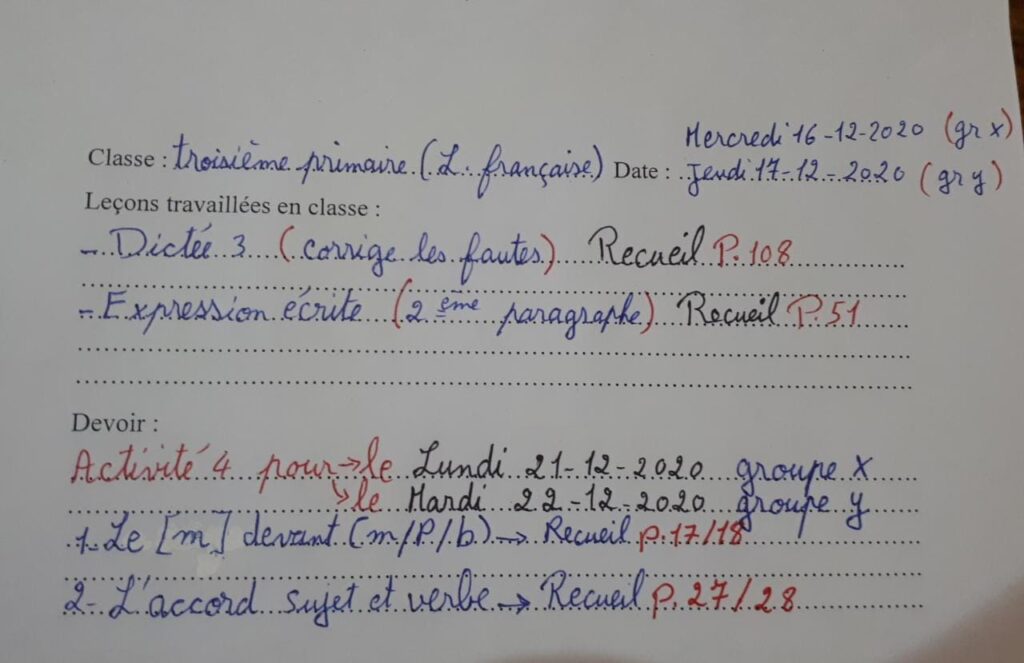 Mercredi 16-12-2020 (gr x)
Classe : troisième primaire (L. française) Date : Jeudi 17-12-2020 (gr y)
Leçons travaillées en classe :
- Dictée 3 (corrige les fautes) Recueil P.108
- Expression écrite (2ème paragraphe) Recueil P.51
Devoir :
Activité 4 pour → le Lundi 21-12-2020 groupe x
↳ le Mardi 22-12-2020 groupe y
1. Le [m] devant (m/P/b) → Recueil p.17/18
2- L'accord sujet et verbe → Recueil p.27/28